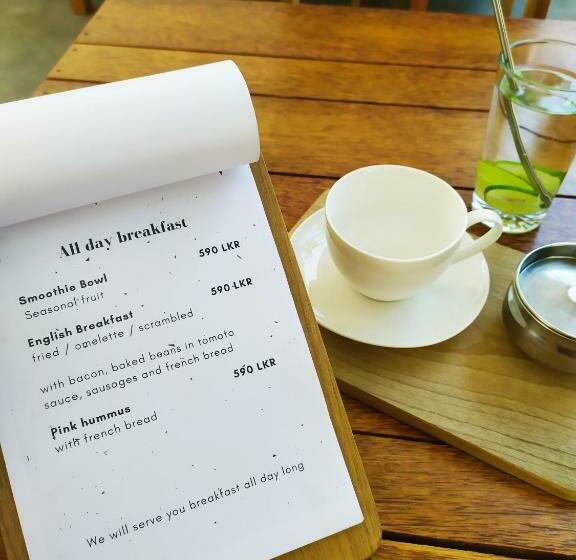 All day breakfast
Smoothie Bowl 590 LKR
Seasonal fruit
English Breakfast 590 LKR
fried / omelette / scrambled
with bacon, baked beans in tomato
sauce, sausages and french bread
Pink hummus 590 LKR
with french bread
We will serve you breakfast all day long